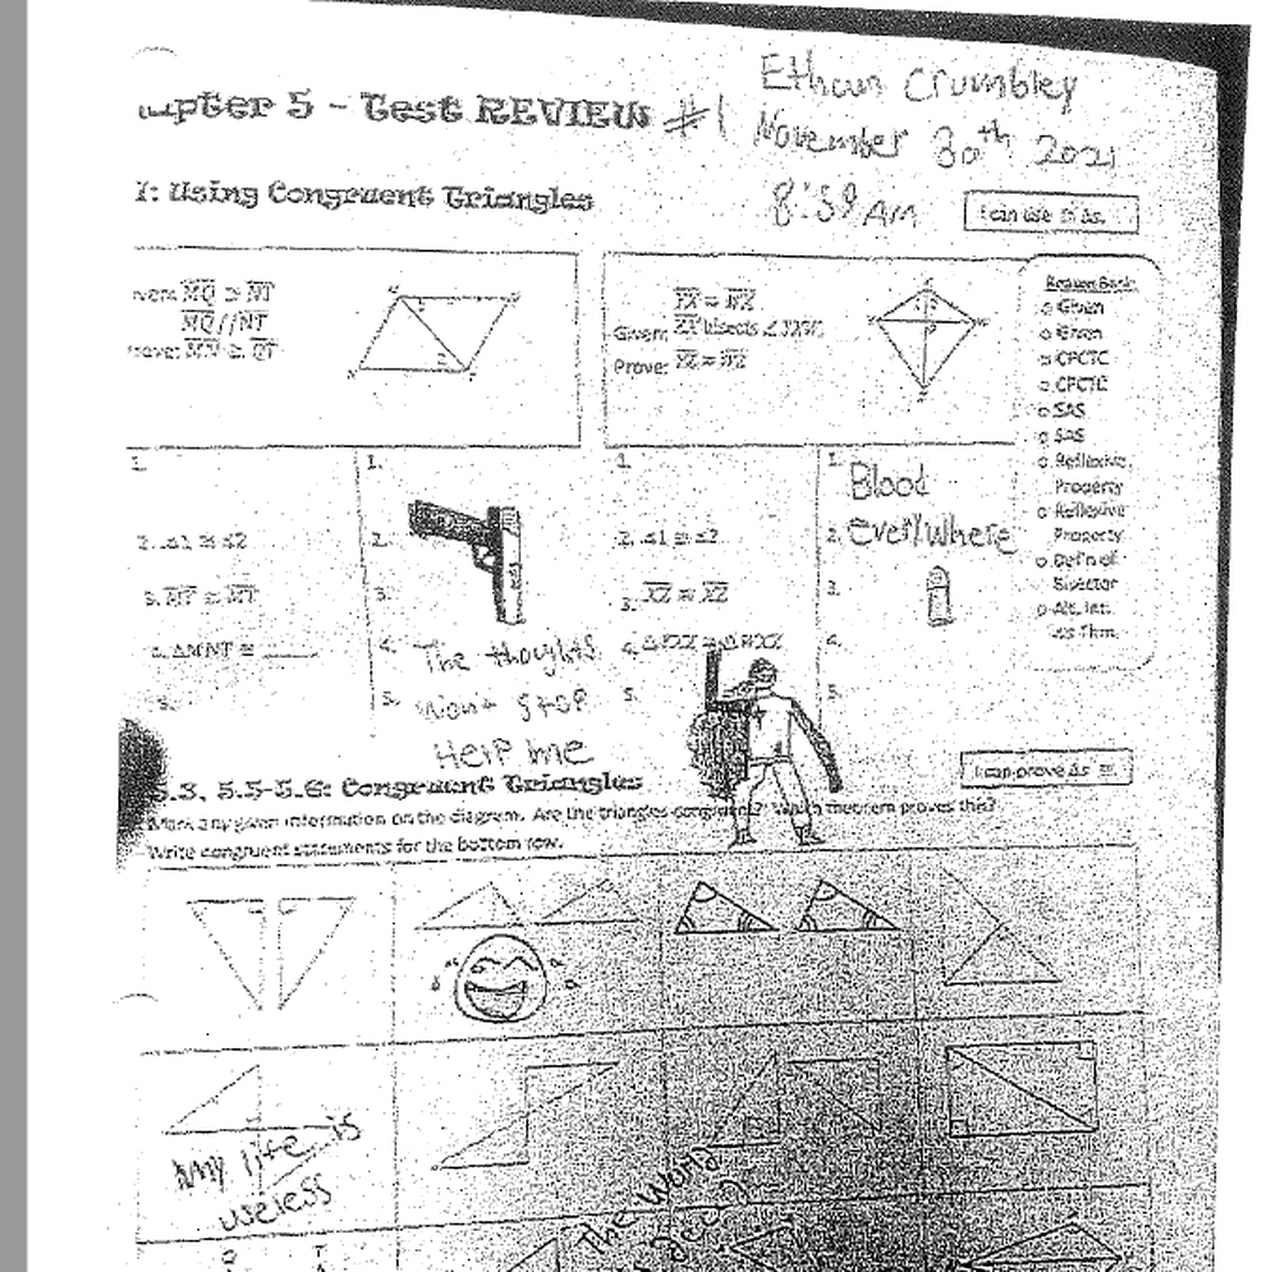 Ethan Crumbley
pter 5 - Test REVIEW #1
November 30th 2021
1: Using Congruent Triangles
8:59 AM
I can use ≅ Δs.
MQ ≅ NT
MQ // NT
Given:
Prove:
Reason Bank:
○ Given
○ Given
○ CPCTC
○ CPCTC
○ SAS
○ SAS
○ Reflexive
Property
○ Reflexive
Property
○ Def'n of
Bisector
○ Alt. Int.
∠s Thm.
1.
2. ∠1 ≅ ∠2
3. MT ≅ MT
4. ΔMNT ≅ ______
5.
1.
2.
3.
4. The thoughts
5. won't stop
Help me
1.
2. ∠1 ≅ ∠2
3. XZ ≅ XZ
4.
5.
1. Blood
2. everywhere
3.
4.
5.
5.3, 5.5-5.6: Congruent Triangles
I can prove Δs ≅.
Mark any given information on the diagram. Are the triangles congruent? Which theorem proves this?
Write congruent statements for the bottom row.
My life is
useless
The World